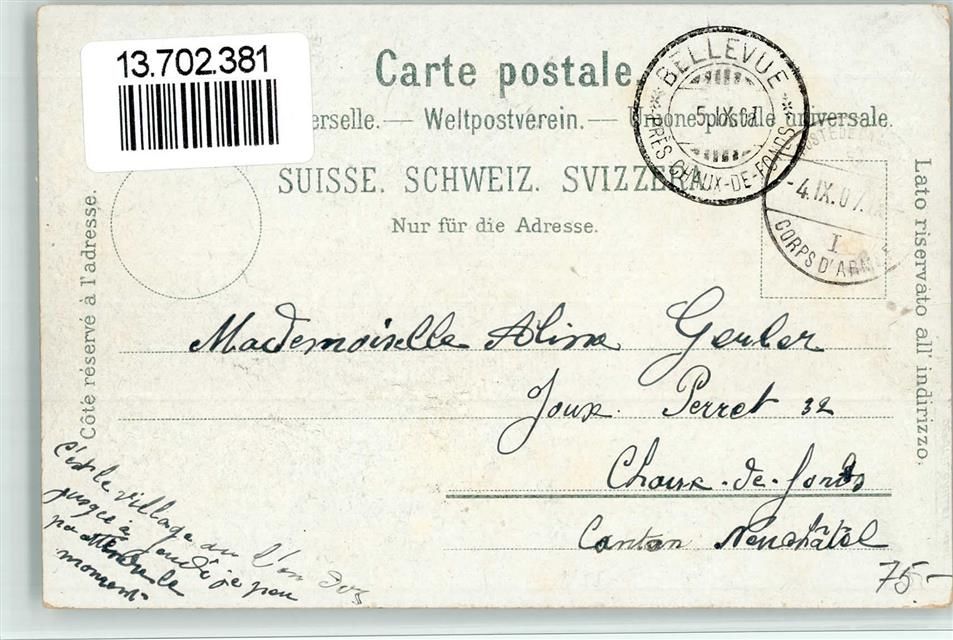 13.702.381
Carte postale
erselle.— Weltpostverein.— Unione postale universale.
SUISSE. SCHWEIZ. SVIZZERA
Nur für die Adresse.
Côté réservé à l'adresse.
Lato riservato all' indirizzo.
BELLEVUE
5.IX.07
PRÈS CHAUX-DE-FONDS
-4.IX.07.
I
CORPS D'ARMÉE
Mademoiselle Aline Gerber
Joux Perret 32
Chaux-de-fonds
Canton Neuchâtel
C'est le village ou l'on
jusqu'à jeudi je peu
pa attendre le
moment.
75.-